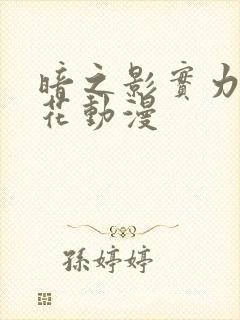 暗之影實力
花動漫
孫婷婷